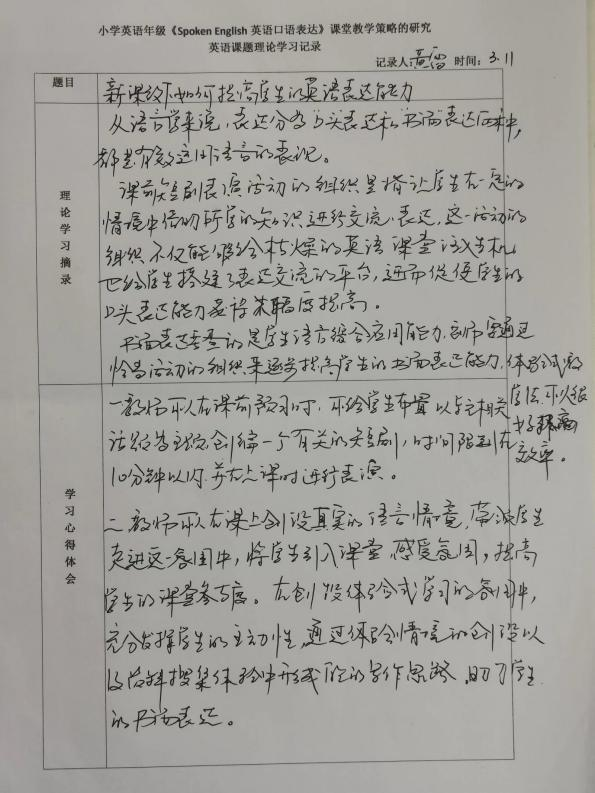 小学英语年级《Spoken English 英语口语表达》课堂教学策略的研究
英语课题理论学习记录
记录人 时间：3.11
题目
新课标下如何提高学生的英语表达能力
理论学习摘录
从语言学来说，表达分为口头表达和书面表达两种，
都是有效运用语言的表现。
课前短剧表演活动的组织是将让学生在一定的
情境中借助所学的知识进行交流、表达，这一活动的
组织不仅能够给枯燥的英语课堂注入生机，
也给学生搭建了表达交流的平台，进而促使学生的
口头表达能力及得提高。
书面表达考查的是学生语言综合应用能力，教师要通过
恰当活动的组织来逐步提高学生的书面表达能力，体验式教
学法，可以很
提高
效率。
学习心得体会
一教师可以在课前预习时，可给学生布置以与之相关
话题为主题创编一个有关的短剧，时间限制在
10分钟以内，并在上课时进行表演。
二教师可以在课上创设真实的语言情境，带领学生
走进这一氛围中，将学生引入课堂，感受氛围，提高
学生的课堂参与度。在创设体验式学习的氛围中，
充分发挥学生的主动性，通过体验情境的创设以
及资料搜集体验中形成的写作思路，助力学生
的书面表达。